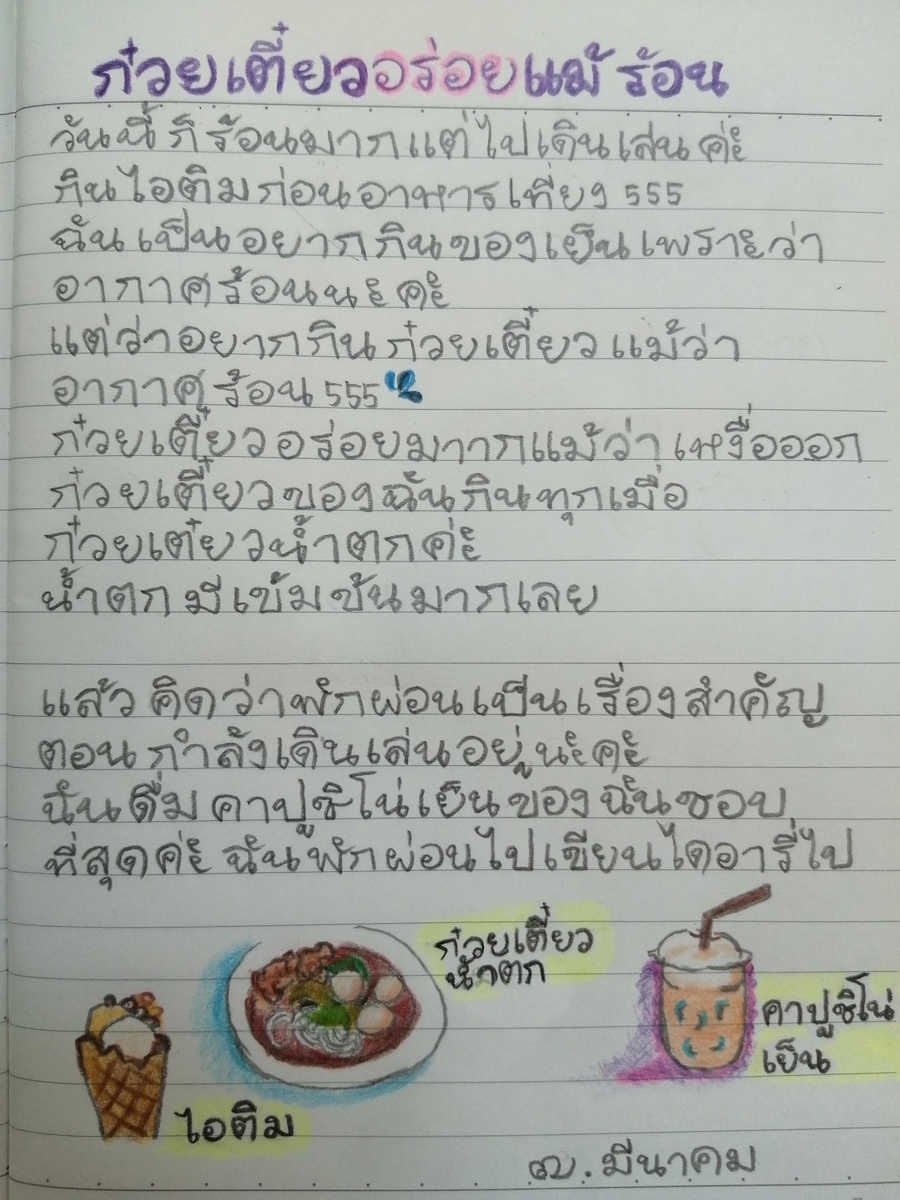 ก๋วยเตี๋ยวอร่อยแม้ ร้อน
วันนี้ ก็ ร้อนมาก แต่ ไปเดินเล่น ค่ะ
กินไอติมก่อนอาหารเที่ยง 555
ฉันเป็นอยากกินของเย็นเพราะว่า
อากาศร้อนนะคะ
แต่ว่าอยากกิน ก๋วยเตี๋ยว แม้ว่า
อากาศ ร้อน 555
ก๋วยเตี๋ยวอร่อยมาากแม้ว่า เหงื่อออก
ก๋วยเตี๋ยวของฉันกินทุกเมื่อ
ก๋วยเต๋ยวน้ำตกค่ะ
น้ำตก มีเข้มข้นมากเลย
แล้ว คิดว่าพักผ่อนเป็นเรื่องสำคัญ
ตอน กำลังเดินเล่นอยู่นะคะ
ฉันดื่ม คาปูชิโน่เย็นของฉันชอบ
ที่สุดค่ะ ฉันพักผ่อนไปเขียนไดอารี่ไป
ก๋วยเตี๋ยว
น้ำตก
คาปูชิโน่
เย็น
ไอติม
๗. มีนาคม